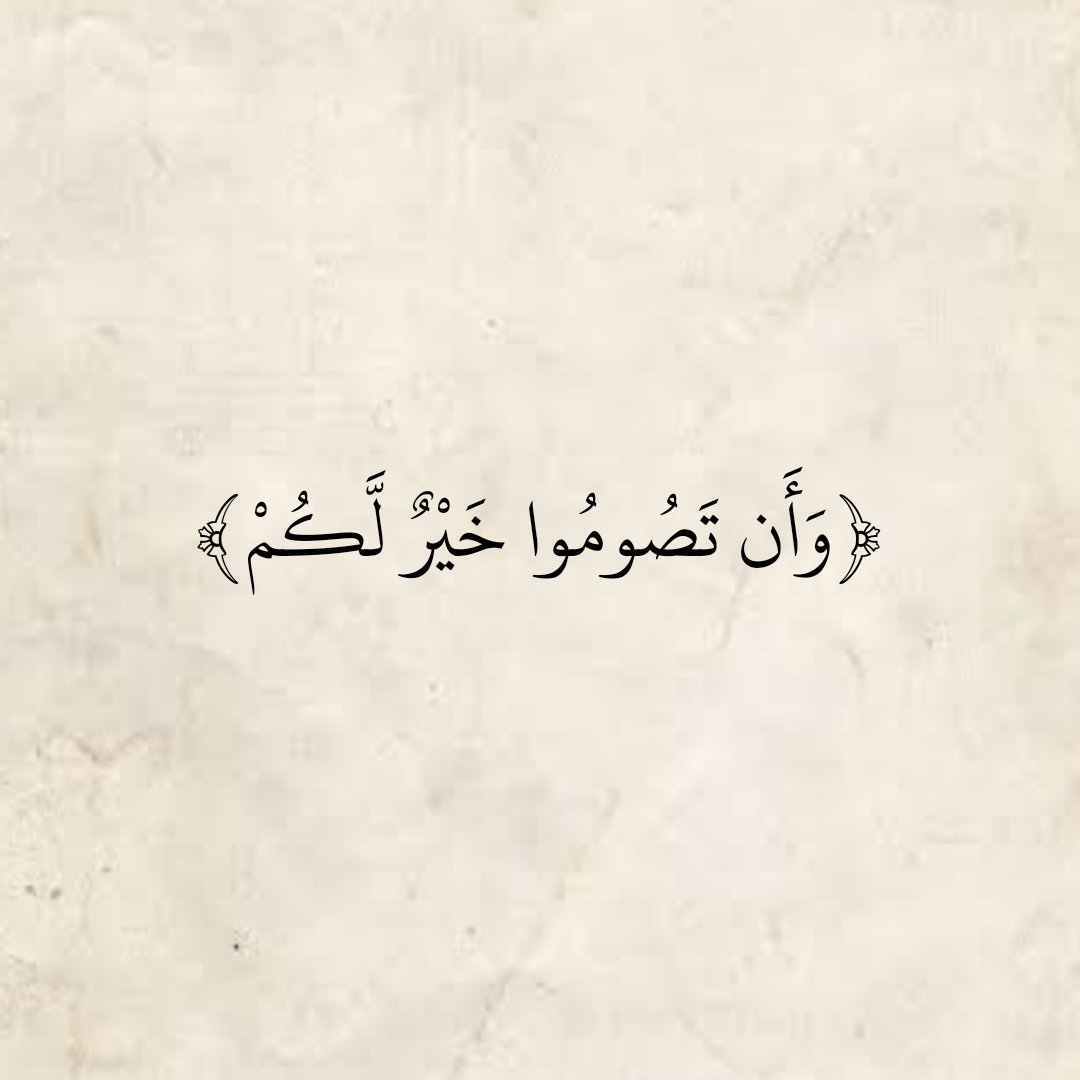 ﴿وَأَن تَصُومُوا خَيْرٌ لَّكُمْ﴾